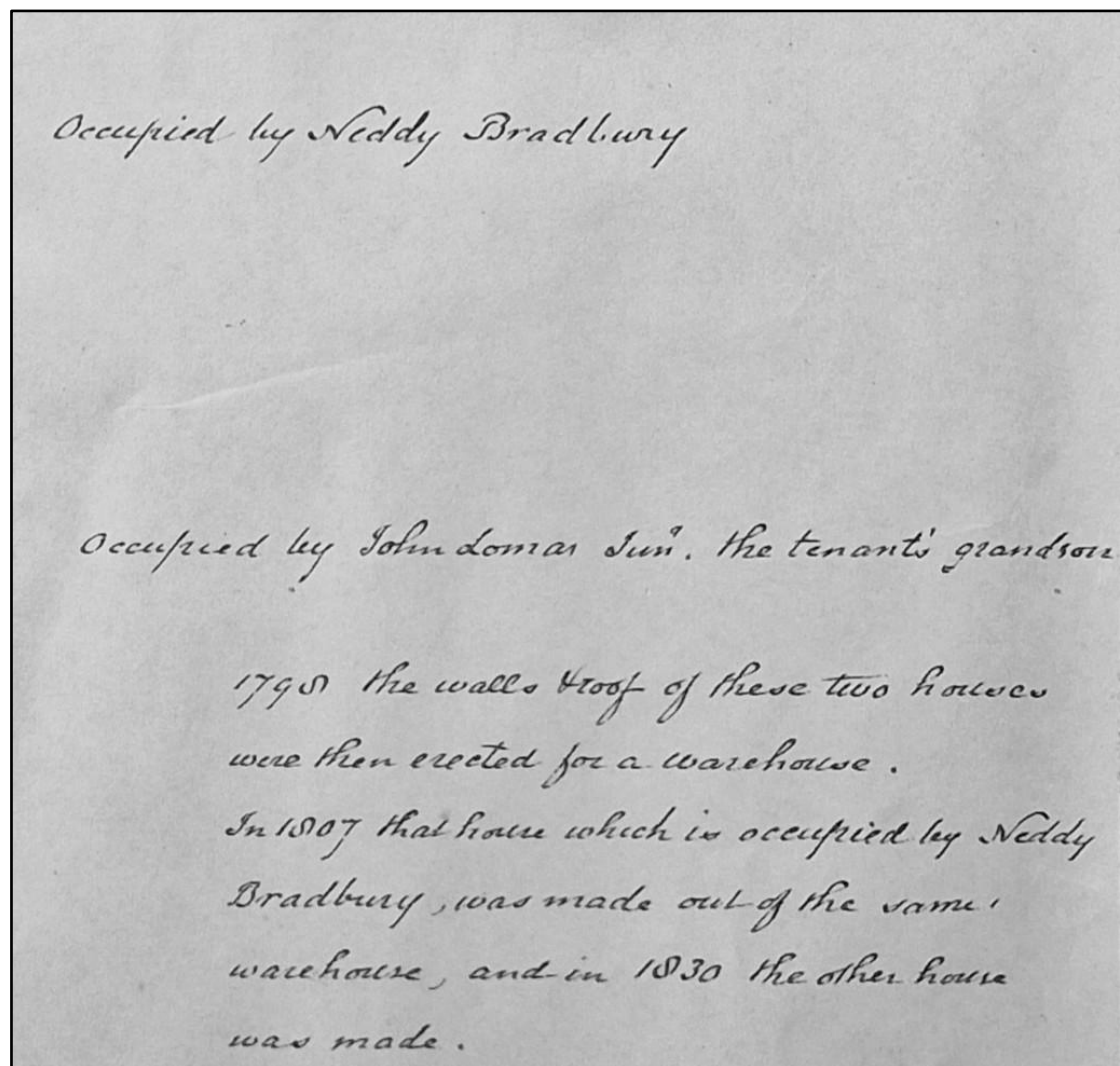 Occupied by Neddy Bradbury
Occupied by John Lomas Junr. the tenant's grandson
1798 the walls & roof of these two houses
were then erected for a warehouse.
In 1807 that house which is occupied by Neddy
Bradbury, was made out of the same
warehouse, and in 1830 the other house
was made.